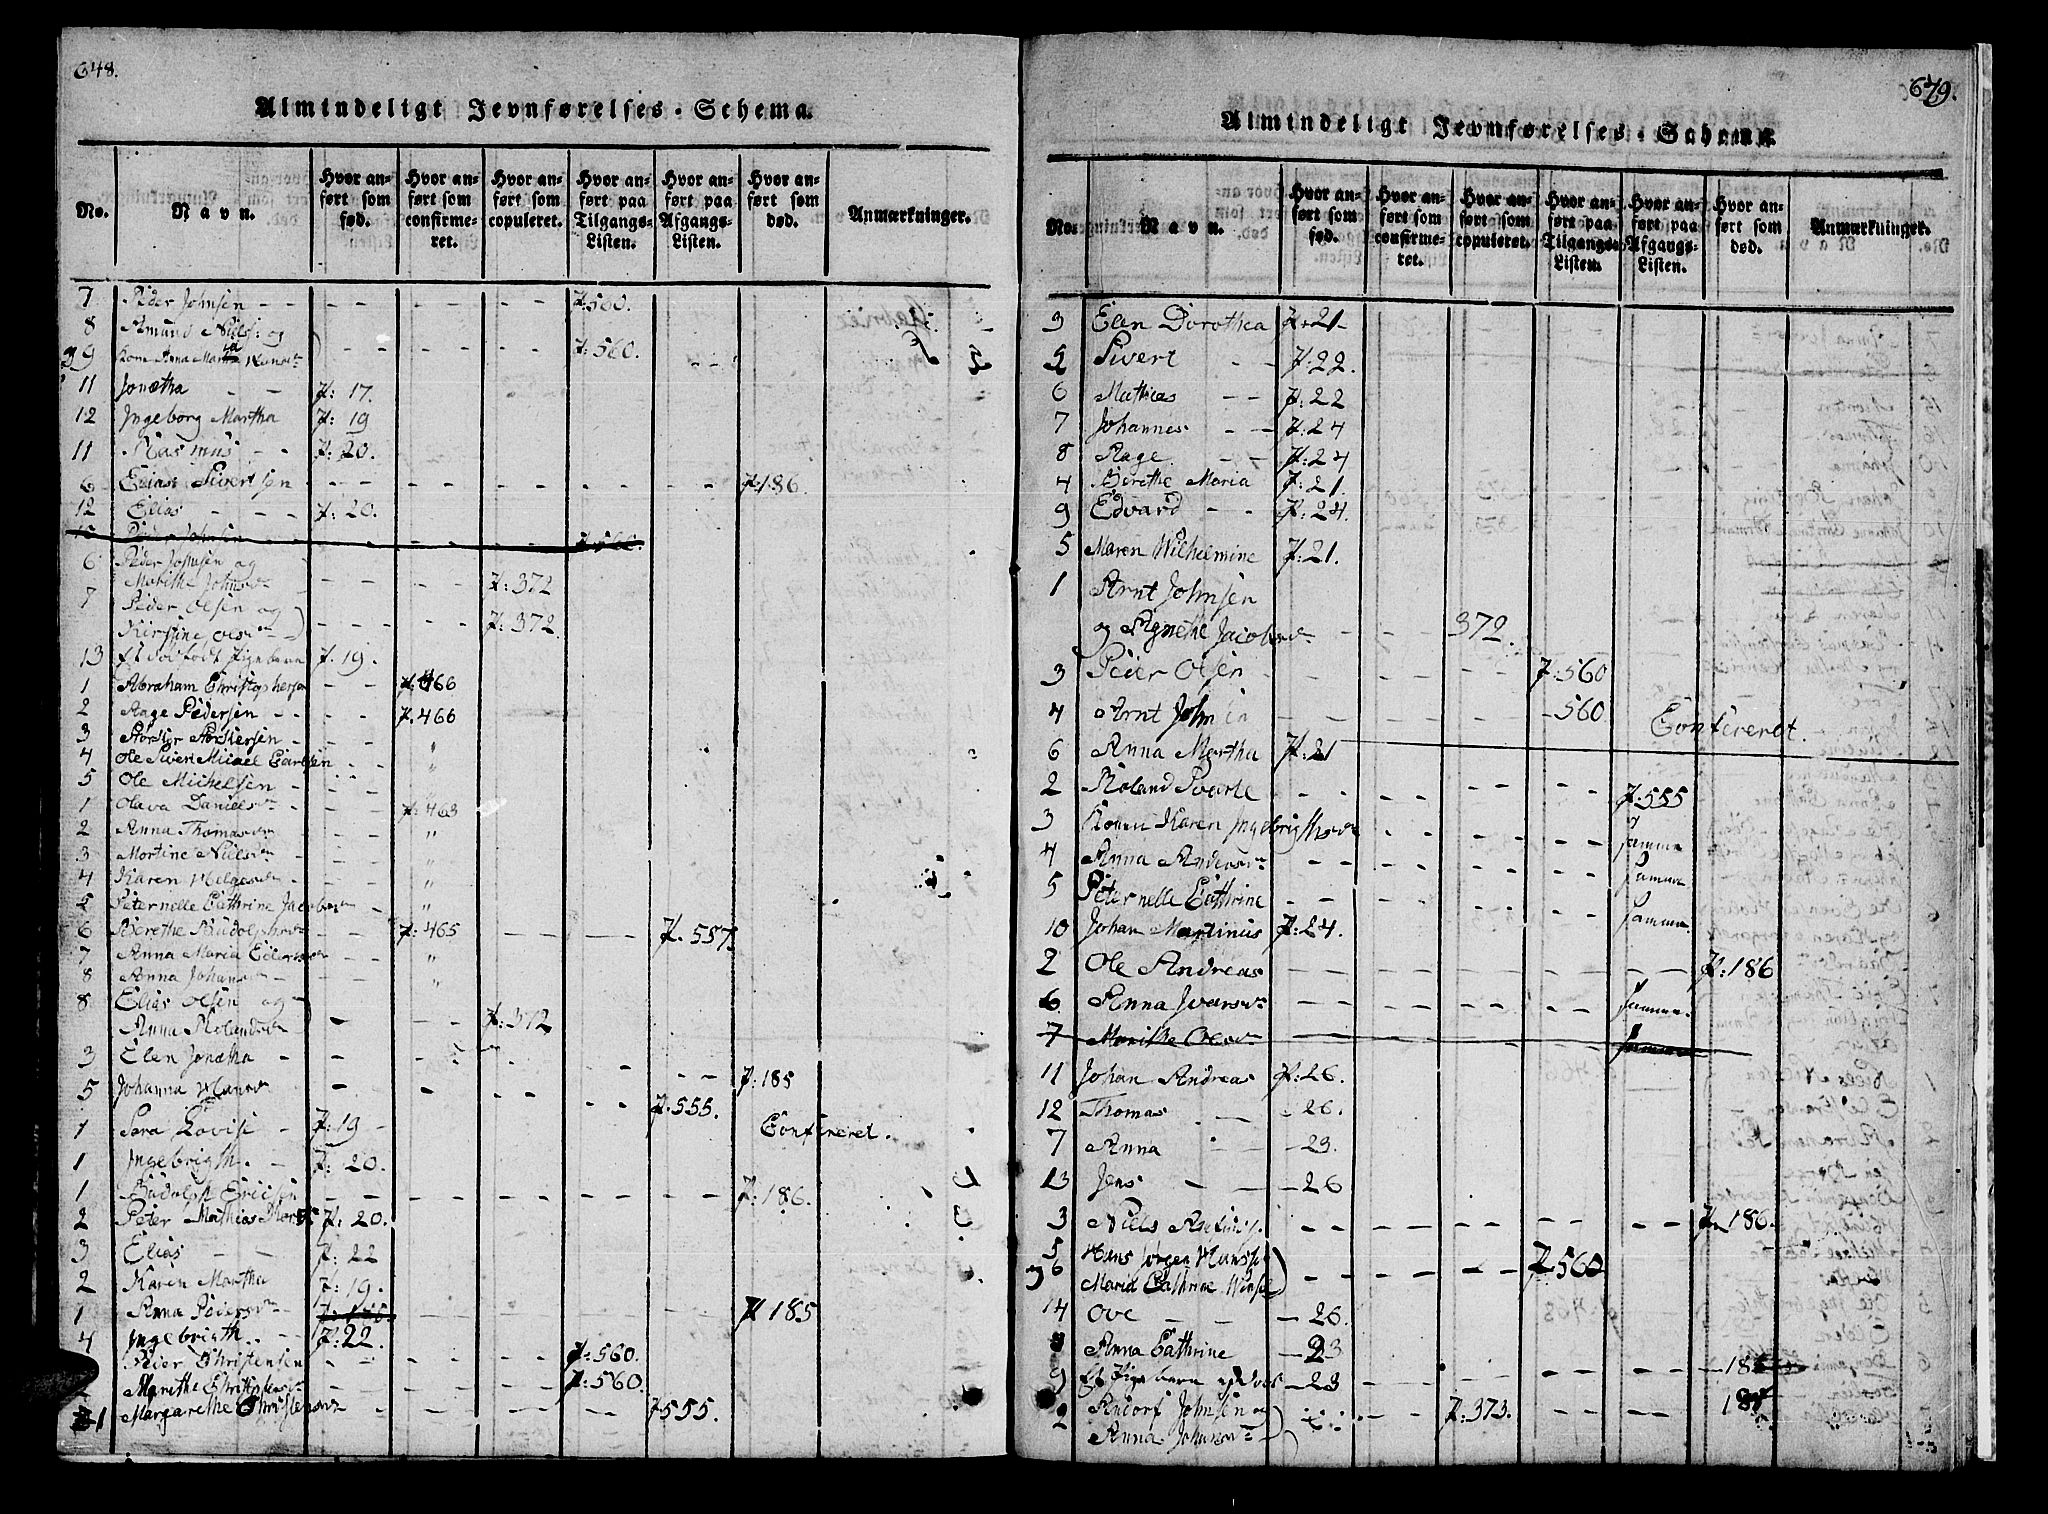 648.
Almindeligt Jevnførelses-Schema.
No.
Navn.
Hvor anført som fød.
Hvor anført som confirmeret.
Hvor anført som copuleret.
Hvor anført paa Tilgangs-Listen.
Hvor anført paa Afgangs-Listen.
Hvor anført som død.
Anmærkninger.
7 Peder Johnsen - - P: 560.
8 Amund Niels: og
9 Kone Anna Martha Hansdr - - - P: 560. - -
11 Jonetha - - P: 17.
12 Ingeborg Martha P: 19
11 Rasmus - - P: 20.
6 Elias Sivertsen - - - - - - P: 186.
12 Elias - - - P: 20.
Peder Johnsen - - -
6 Peder Johnsen og
Marithe Johnsdr - - - P: 372
7 Peder Olsen og
Kirstine Olsdr - - - - P: 372.
13 Et dødfødt Pigebarn P. 19.
1 Abraham Christophersen P. 466
2 Aage Pedersen - - - - P. 466
3
4 Ole Sivert Micael - - "
5 Ole Michelsen - - -
1 Olava Danielsdr - - P: 463
2 Anna Thomasdr - - "
3 Mortine Nielsdr - - "
4 Karen Helgesdr - - "
5 Peternelle Cathrine Jacobsdr - "
6 Berethe Rudolphsdr - - P: 465 - - - - P. 557.
7 Anna Maria - - "
8 Anna Johansdr - - "
8 Elias Olsen og
Anna Rolandsdr - - - P: 372
3 Elen Jonetha - - - - - - - P: 185
5 Johanna Hansdr - - - - - - P. 555.
1 Sara Lovise - P: 19 - Confireret.
1 Ingebrigth. - P: 20.
1 Rudolph Ericsen - - - - - - P: 186.
2 Peter Mathias P: 20.
3 Elias - - P: 22
2 Karen Martha P: 19.
1 Anna Pedersdr - - - - - P 185
4 Ingebrigth.. - - P: 22.
Peder Christensen - - - P: 560.
2 Marithe - - - P: 560.
1 Margarethe - - - - P 555.
679.
Almindeligt Jevnførelses-Schema.
No.
Navn.
Hvor anført som fød.
Hvor anført som confirmeret.
Hvor anført som copuleret.
Hvor anført paa Tilgangs-Listen.
Hvor anført paa Afgangs-Listen.
Hvor anført som død.
Anmærkninger.
3 Elen Dorothea P. 21 -
5 Sivert - - P. 22.
6 Mathias - - P: 22
7 Johannes - - P: 24
8 Aage - - P: 24
4 Berethe Maria P: 21.
9 Edvard - - P: 24.
5 Maren Wilhelmine P: 21.
1 Arnt Johnsen
og Agnethe Jacobsdr - - 372.
3 Peder Olsen - - - - P: 560
4 Arnt Johnsen - - - - - 560 Confireret.
6 Anna Martha P: 21
2 Roland - - - - - P. 555
3 Konen Karen Ingebrigthsdr - - - - samme
4 Anna Andersdr - - - - samme
5 Peternelle Cathrine - - - - samme.
10 Johan Martinus P: 24.
2 Ole Andreas - - - - - P: 186
6 Anna Ivarsdr - - - - samme.
7 Marithe Olsdr - - - - samme
11 Johan Andreas P: 26.
12 Thomas - - 26.
7 Anna - - 23.
13 Jens - - 26
3 Niels - - - - - P. 186.
5 Hans Jørgen Hanssen
6 Maria Cathrine - - - P 560
14 Ove - - 26.
8 Anna Cathrine - 23
9 Et Pigebarn - 23 - - -
2 Andorf Johnsen og
Anna Johnsdr - - P: 373. - -